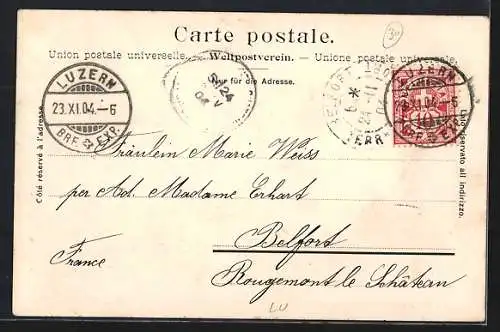 Carte postale.
Union postale universelle. — Weltpostverein. — Unione postale universale.
Nur für die Adresse.
Côté réservé à l'adresse.
Lato riservato all indirizzo.
LUZERN
23.XI.04.-6
BRF. EXP.
24
LUZERN
23.XI.04.-6
BRF. EXP.
30
Fräulein Marie Weiss
per Ad. Madame Erhart
Belfort
France
Rougemont le Château
LU